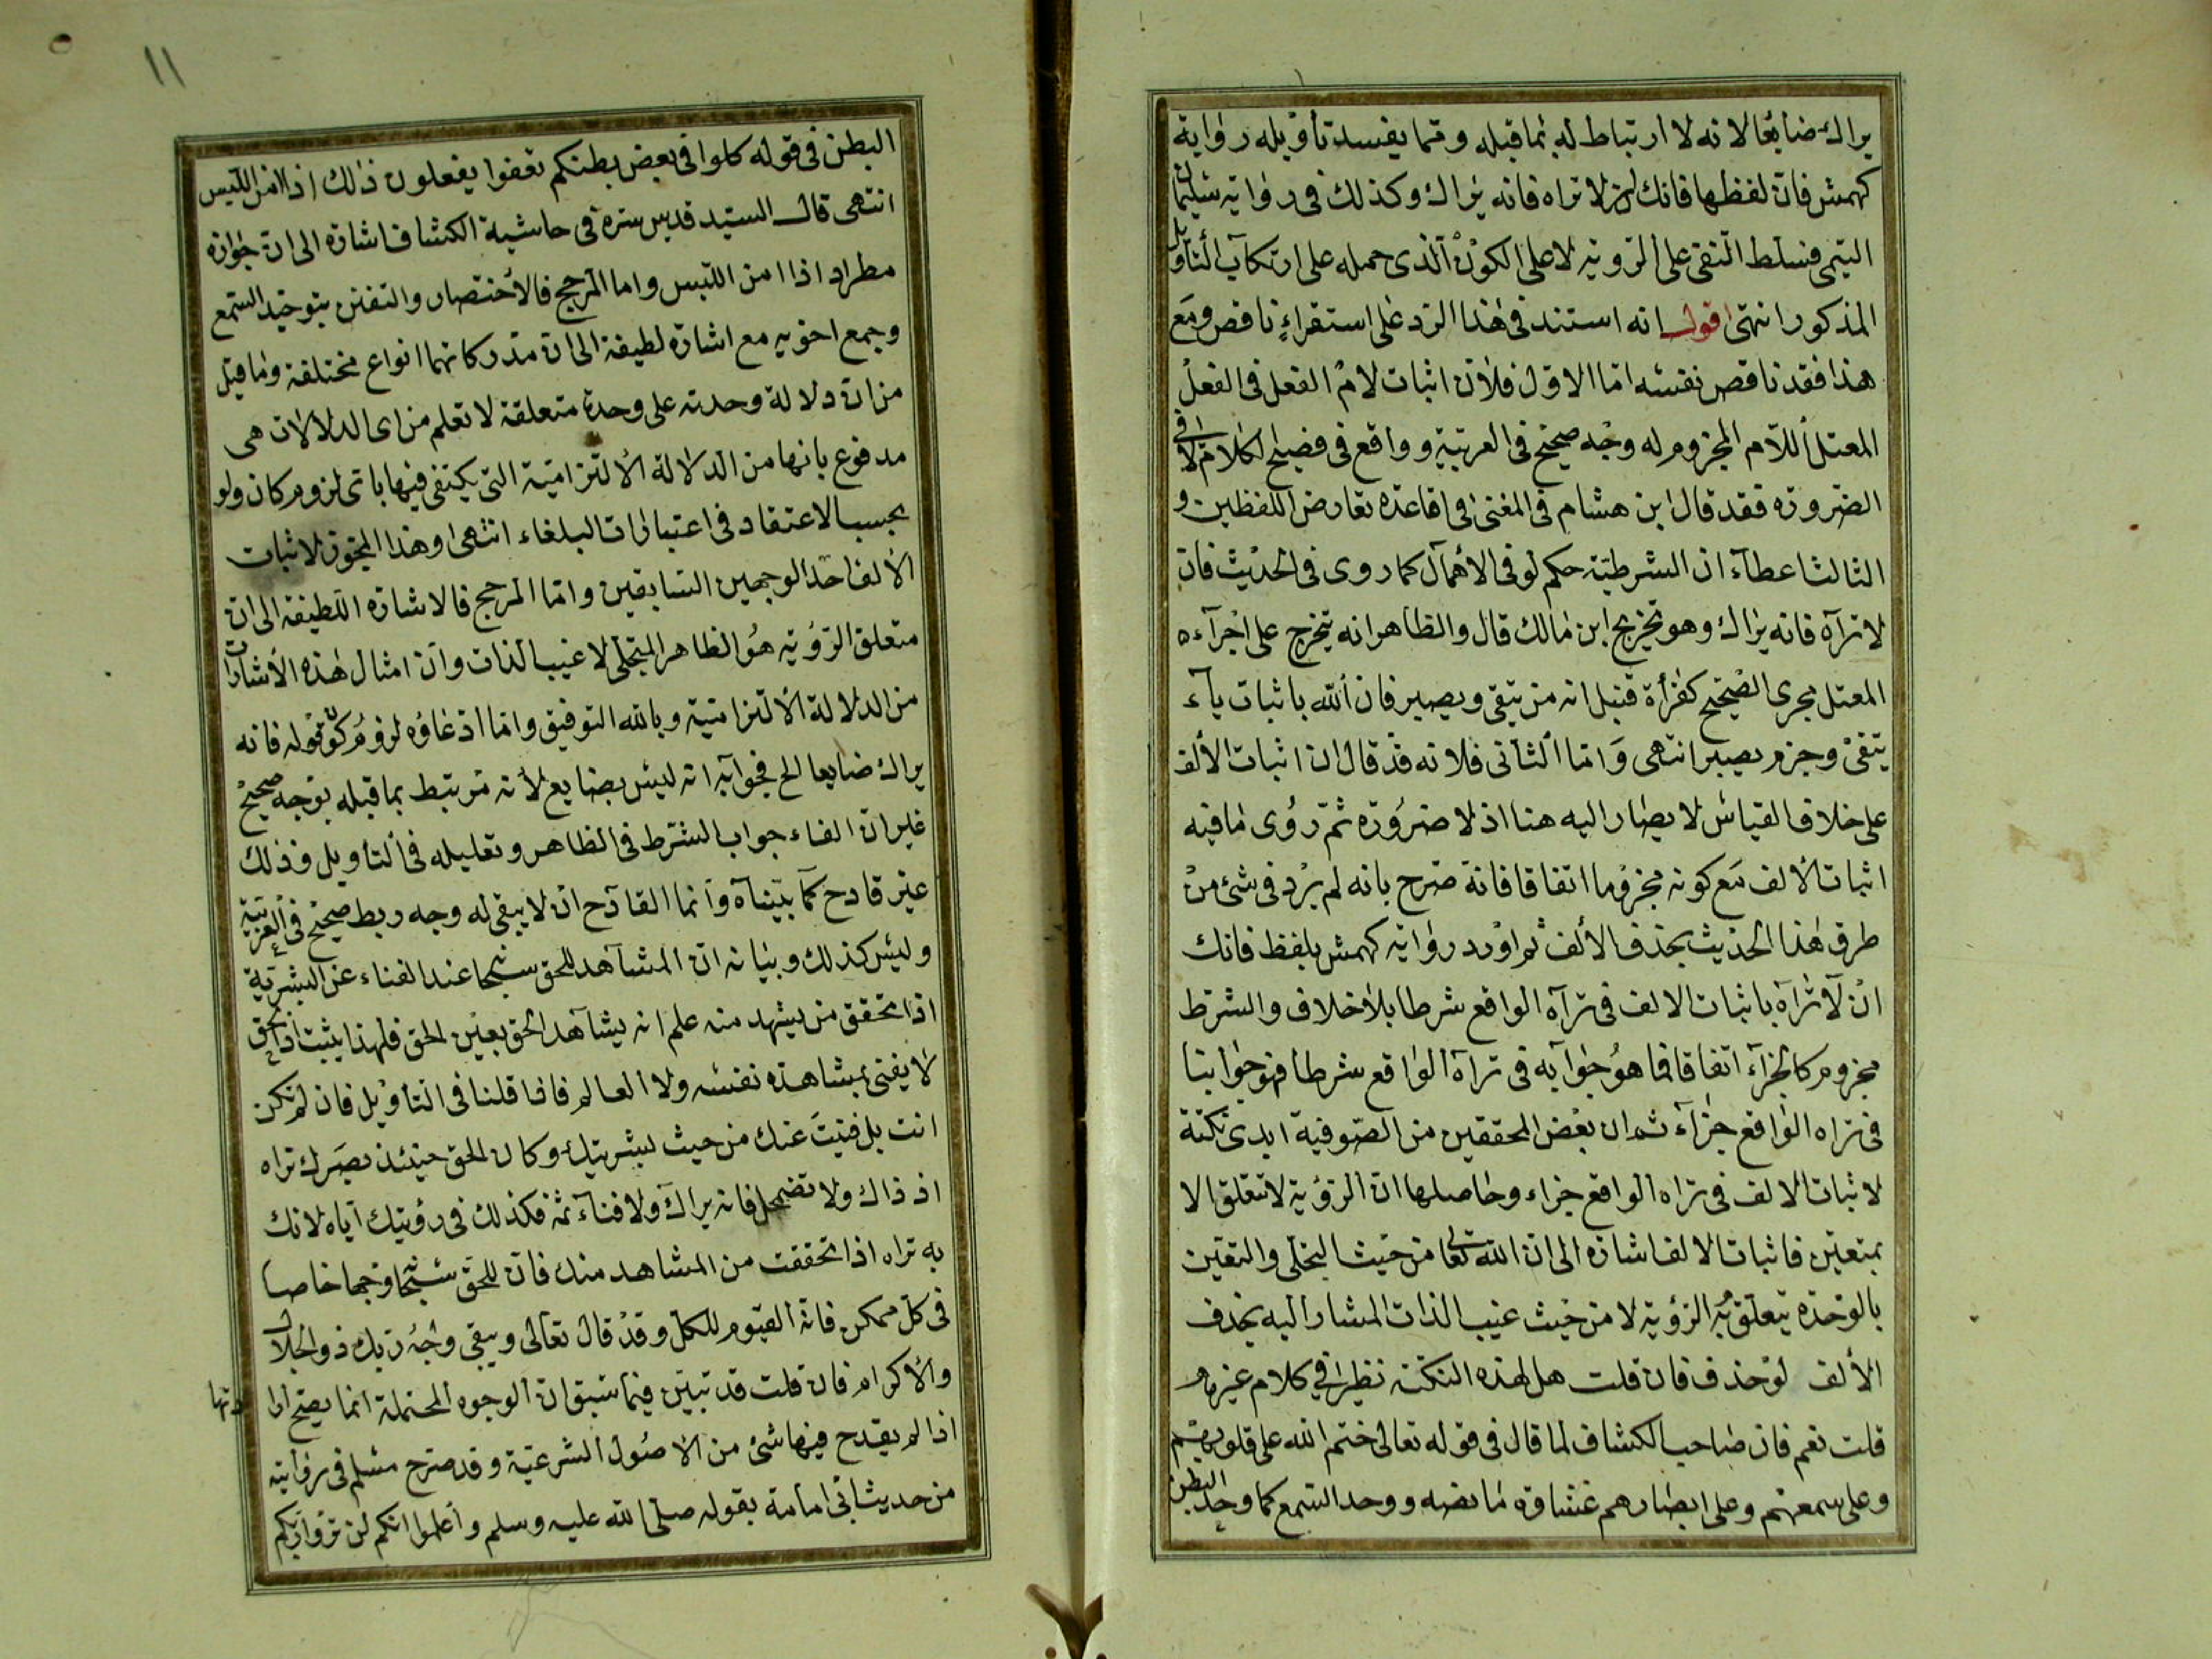 يراك ضائعا لانه لا ارتباط له بما قبله ومما يفسد تأويله رواية
كهمش فان لفظها فانك ان لا تراه فانه يراك وكذلك في رواية سليمان
التيمي فسلط النفي على الرؤية لا على الكون الذي حمله على ارتكاب التأويل
المذكور انتهى اقول انه استند في هذا الرد على استقراء ناقص ومع
هذا فقد ناقض نفسه اما الاول فلان اثبات لام الفعل في الفعل
المعتل اللام المجزوم له وجه صحيح في العربية وواقع في فصيح الكلام لا في
الضرورة فقد قال ابن هشام في المغني في قاعدة تقارض اللفظين و
الثالث اعطاء ان الشرطية حكم لو في الاهمال كما روى في الحديث فان
لا تراه فانه يراك وهو تخريج ابن مالك قال والظاهر انه يتخرج على اجراء
المعتل مجرى الصحيح كقرأة قنبل انه من يتقى ويصبر فان الله باثبات ياء
يتقى وجزم يصبر انتهى واما الثاني فلانه قد قال ان اثبات الألف
على خلاف القياس لا يصار اليه هنا اذ لا ضرورة ثم روى ما فيه
اثبات الألف مع كونه مجزوما اتفاقا فانه صرح بانه لم يرد في شئ من
طرق هذا الحديث بحذف الألف ثم اورد رواية كهمش بلفظ فانك
ان لا تراه باثبات الالف في تراه الواقع شرطا بلا خلاف والشرط
مجزوم كالجزاء اتفاقا فما هو جوابه في تراه الواقع شرطا فهو جوابنا
في تراه الواقع جزاء ثم ان بعض المحققين من الصوفية ابدى نكتة
لاثبات الالف في تراه الواقع جزاء وحاصلها ان الرؤية لا تتعلق الا
بمتعين فاثبات الالف اشارة الى ان الله تعالى من حيث التجلي والتعين
بالوحدة يتعلق به الرؤية لا من حيث غيب الذات المشار اليه بحذف
الألف لو حذف فان قلت هل لهذه النكتة نظير في كلام غيرهم
قلت نعم فان صاحب الكشاف لما قال في قوله تعالى ختم الله على قلوبهم
وعلى سمعهم وعلى ابصارهم غشاوة ما نصه ووحد السمع كما وحد البطن
١١
البطن في قوله كلوا في بعض بطنكم تعفوا يفعلون ذلك اذا امن اللبس
انتهى قال السيد قدس سره في حاشية الكشاف اشارة الى ان جوازه
مطرد اذا امن اللبس واما المرجح فالأختصار والتفنن بتوحيد السمع
وجمع اخويه مع اشارة لطيفة الى ان مدركاتهما انواع مختلفة وما قيل
من ان دلالة وحدته على وحدة متعلقة لا تعلم من اى الدلالات هى
مدفوع بانها من الدلالة الالتزامية التي يكتفى فيها باى لزوم كان ولو
بحسب الاعتقاد في اعتبارات البلغاء انتهى وهذا المجوز لاثبات
الألف احد الوجهين السابقين واما المرجح فالاشارة اللطيفة الى ان
متعلق الرؤية هو الظاهر المتجلي لا غيب الذات وان امثال هذه الأشارات
من الدلالة الالتزامية وبالله التوفيق واما ادعاؤه لزوم كون قوله فانه
يراك ضايعا الخ فجوابه انه ليس بضايع لأنه مرتبط بما قبله بوجه صحيح
غير ان الفاء جواب الشرط في الظاهر وتعليله في التأويل وذلك
غير قادح كما بيناه وانما القادح ان لا يبقى له وجه ربط صحيح في العربية
وليس كذلك وبيانه ان المشاهد للحق سبحانه عند الفناء عن البشرية
اذا تحقق من يشهد منه علم انه يشاهد الحق بعين الحق فلهذا يثبت اذ الحق
لا يفنى بمشاهدة نفسه ولا العالم فاذا قلنا في التأويل فان لم تكن
انت بل فنيت عنك من حيث بشريتك وكان الحق حينئذ بصرك تراه
اذ ذاك ولا تضمحل فانه يراك ولا فناء ثمه فكذلك في رؤيتك اياه لانك
به تراه اذا تحققت من المشاهد منك فان للحق سبحانه وجها خاصا
في كل ممكن فانه القيوم للكل وقد قال تعالى ويبقى وجه ربك ذو الجلال
والاكرام فان قلت قد تبين فيما سبق ان الوجوه المحتملة انما يصح ارادتها
اذا لم يقدح فيها شئ من الاصول الشرعية وقد صرح مسلم في روايته
من حديث ابي امامة بقوله صلى الله عليه وسلم واعلموا انكم لن تروا ربكم